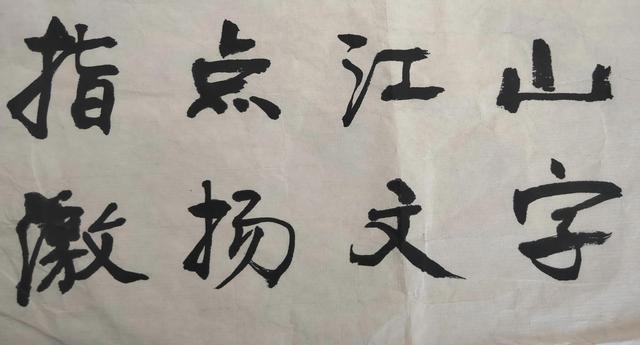 指点江山
激扬文字